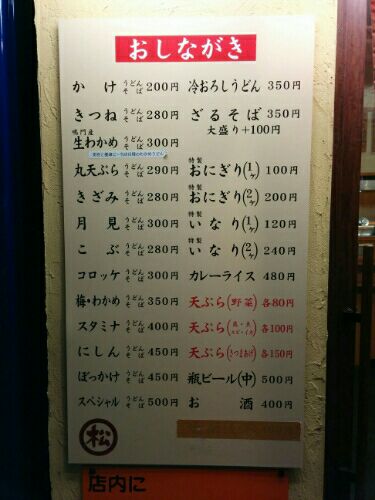 おしながき
かけ うどん そば 200円
きつね うどん そば 280円
鳴門産
生わかめ うどん そば 300円
丸天ぷら うどん そば 290円
きざみ うどん そば 280円
月見 うどん そば 300円
こぶ うどん そば 280円
コロッケ うどん そば 300円
梅・わかめ うどん そば 350円
スタミナ うどん そば 400円
にしん うどん そば 450円
ぼっかけ うどん そば 450円
スペシャル うどん そば 500円
冷おろしうどん 350円
ざるそば 350円
大盛り+100円
特製 おにぎり(1ヶ) 100円
特製 おにぎり(2ヶ) 200円
特製 いなり(1ヶ) 120円
特製 いなり(2ヶ) 240円
カレーライス 480円
天ぷら(野菜) 各80円
天ぷら 各100円
天ぷら(さつまあげ) 各150円
瓶ビール(中) 500円
お酒 400円
松
店内に